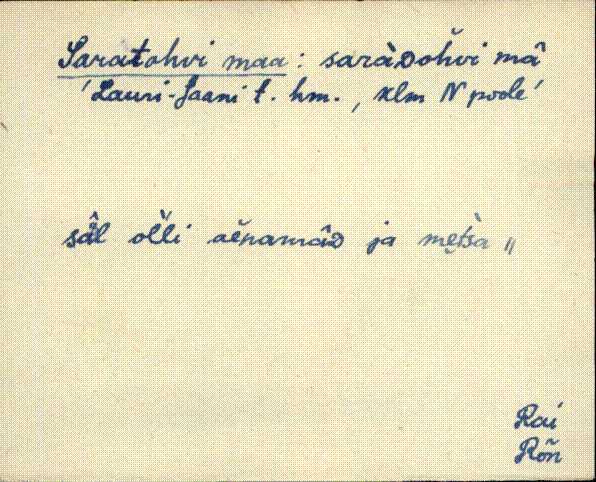 Saratohvi maa : saràᴅoh̆vi mâ
'Lauri-Jaani t. hm., klm N poole'
sä̂l ol̆li aĕnamâᴅ ja met̀sa „
Rai
Rõn